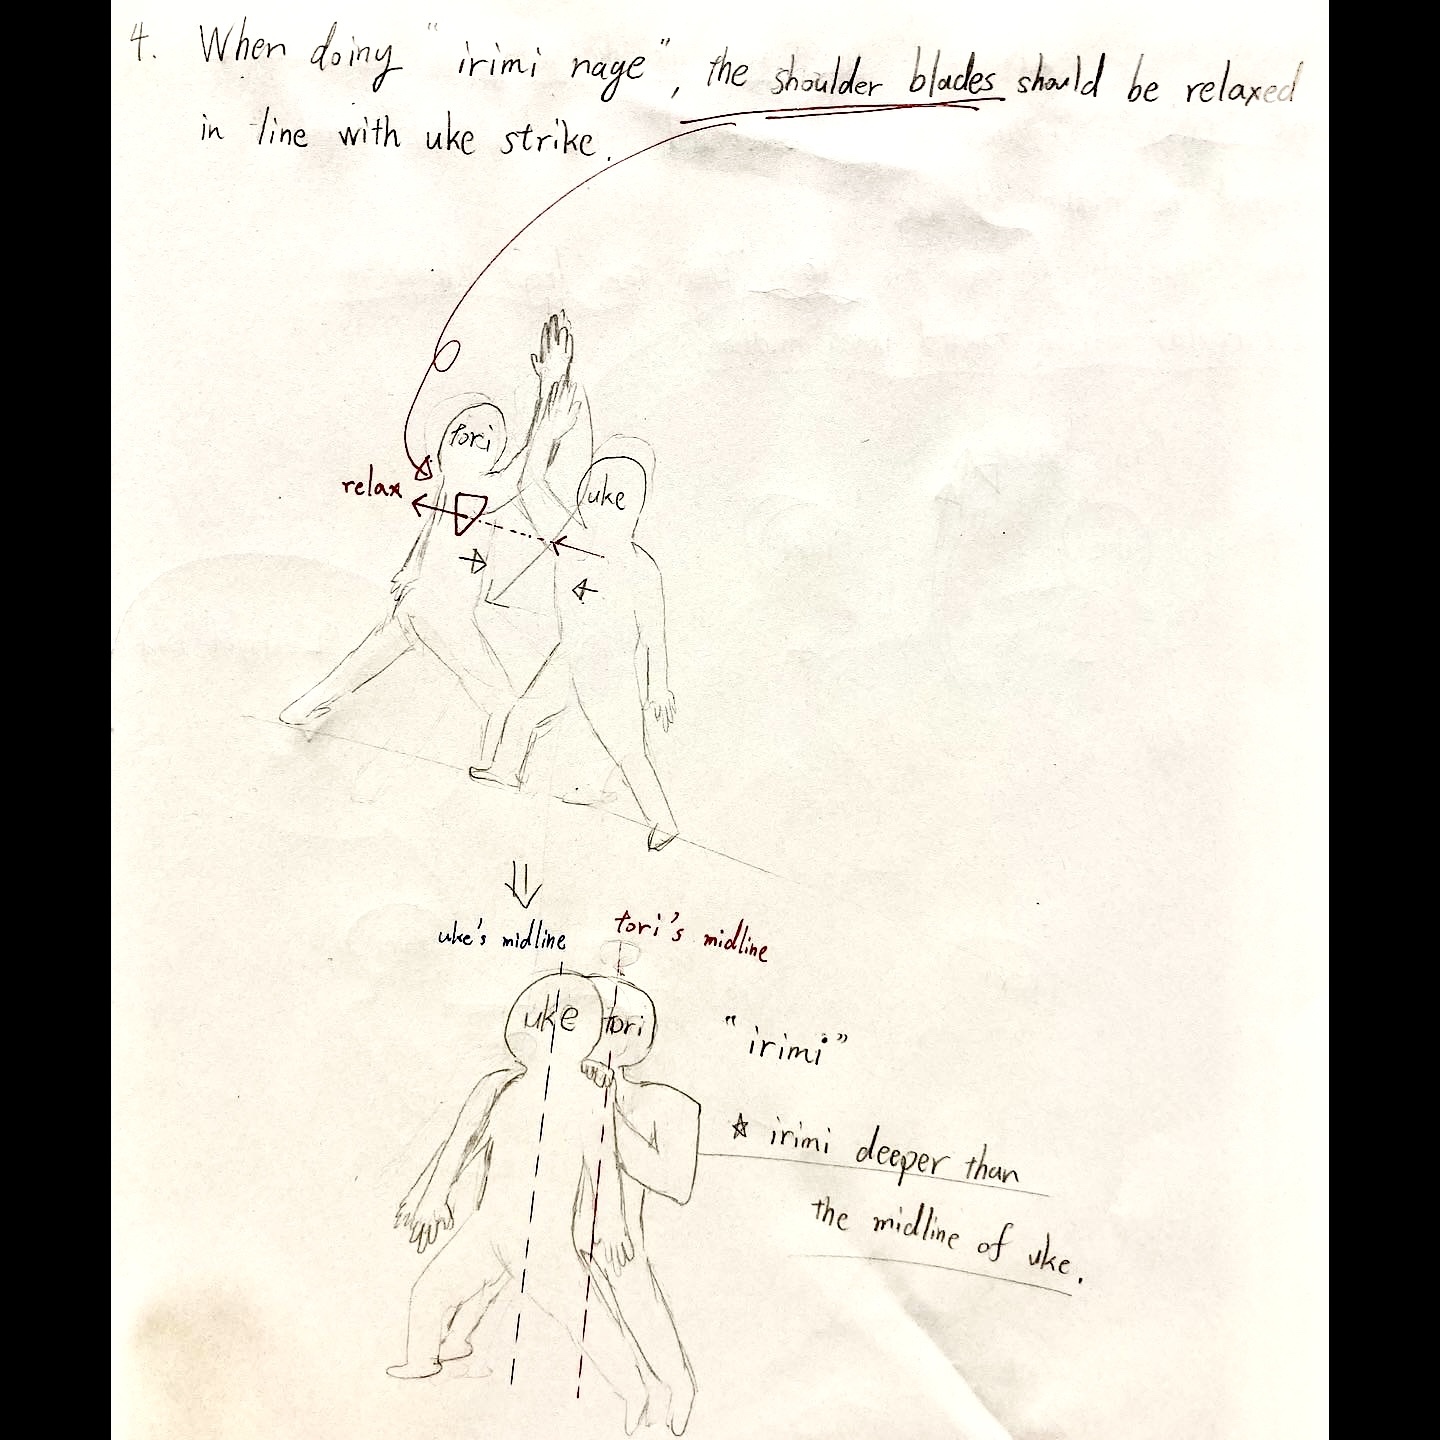 4. When doing "irimi nage", the shoulder blades should be relaxed
in line with uke strike.
tori
relax
uke
uke's midline
tori's midline
uke
tori
"irimi"
☆ irimi deeper than
the midline of uke.